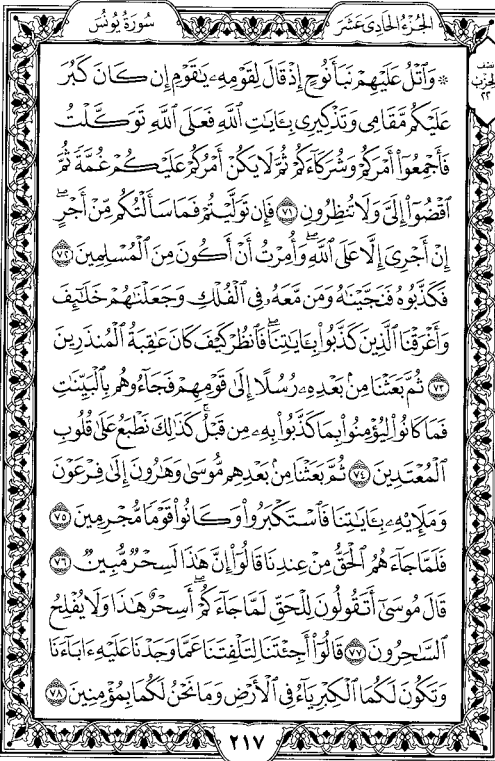 سُورَةُ يُونُسَ
الجُزْءُ الحَادِي عَشَرَ
نصف
الحزب
٢٢
۞ وَٱتْلُ عَلَيْهِمْ نَبَأَ نُوحٍ إِذْ قَالَ لِقَوْمِهِۦ يَٰقَوْمِ إِن كَانَ كَبُرَ
عَلَيْكُم مَّقَامِى وَتَذْكِيرِى بِـَٔايَٰتِ ٱللَّهِ فَعَلَى ٱللَّهِ تَوَكَّلْتُ
فَأَجْمِعُوٓا۟ أَمْرَكُمْ وَشُرَكَآءَكُمْ ثُمَّ لَا يَكُنْ أَمْرُكُمْ عَلَيْكُمْ غُمَّةً ثُمَّ
ٱقْضُوٓا۟ إِلَىَّ وَلَا تُنظِرُونِ ٧١ فَإِن تَوَلَّيْتُمْ فَمَا سَأَلْتُكُم مِّنْ أَجْرٍ ۖ
إِنْ أَجْرِىَ إِلَّا عَلَى ٱللَّهِ ۖ وَأُمِرْتُ أَنْ أَكُونَ مِنَ ٱلْمُسْلِمِينَ ٧٢
فَكَذَّبُوهُ فَنَجَّيْنَٰهُ وَمَن مَّعَهُۥ فِى ٱلْفُلْكِ وَجَعَلْنَٰهُمْ خَلَٰٓئِفَ
وَأَغْرَقْنَا ٱلَّذِينَ كَذَّبُوا۟ بِـَٔايَٰتِنَا ۖ فَٱنظُرْ كَيْفَ كَانَ عَٰقِبَةُ ٱلْمُنذَرِينَ
٧٣ ثُمَّ بَعَثْنَا مِنۢ بَعْدِهِۦ رُسُلًا إِلَىٰ قَوْمِهِمْ فَجَآءُوهُم بِٱلْبَيِّنَٰتِ
فَمَا كَانُوا۟ لِيُؤْمِنُوا۟ بِمَا كَذَّبُوا۟ بِهِۦ مِن قَبْلُ ۚ كَذَٰلِكَ نَطْبَعُ عَلَىٰ قُلُوبِ
ٱلْمُعْتَدِينَ ٧٤ ثُمَّ بَعَثْنَا مِنۢ بَعْدِهِم مُّوسَىٰ وَهَٰرُونَ إِلَىٰ فِرْعَوْنَ
وَمَلَإِي۟هِۦ بِـَٔايَٰتِنَا فَٱسْتَكْبَرُوا۟ وَكَانُوا۟ قَوْمًا مُّجْرِمِينَ ٧٥
فَلَمَّا جَآءَهُمُ ٱلْحَقُّ مِنْ عِندِنَا قَالُوٓا۟ إِنَّ هَٰذَا لَسِحْرٌ مُّبِينٌ ٧٦
قَالَ مُوسَىٰٓ أَتَقُولُونَ لِلْحَقِّ لَمَّا جَآءَكُمْ ۖ أَسِحْرٌ هَٰذَا وَلَا يُفْلِحُ
ٱلسَّٰحِرُونَ ٧٧ قَالُوٓا۟ أَجِئْتَنَا لِتَلْفِتَنَا عَمَّا وَجَدْنَا عَلَيْهِ ءَابَآءَنَا
وَتَكُونَ لَكُمَا ٱلْكِبْرِيَآءُ فِى ٱلْأَرْضِ وَمَا نَحْنُ لَكُمَا بِمُؤْمِنِينَ ٧٨
٢١٧